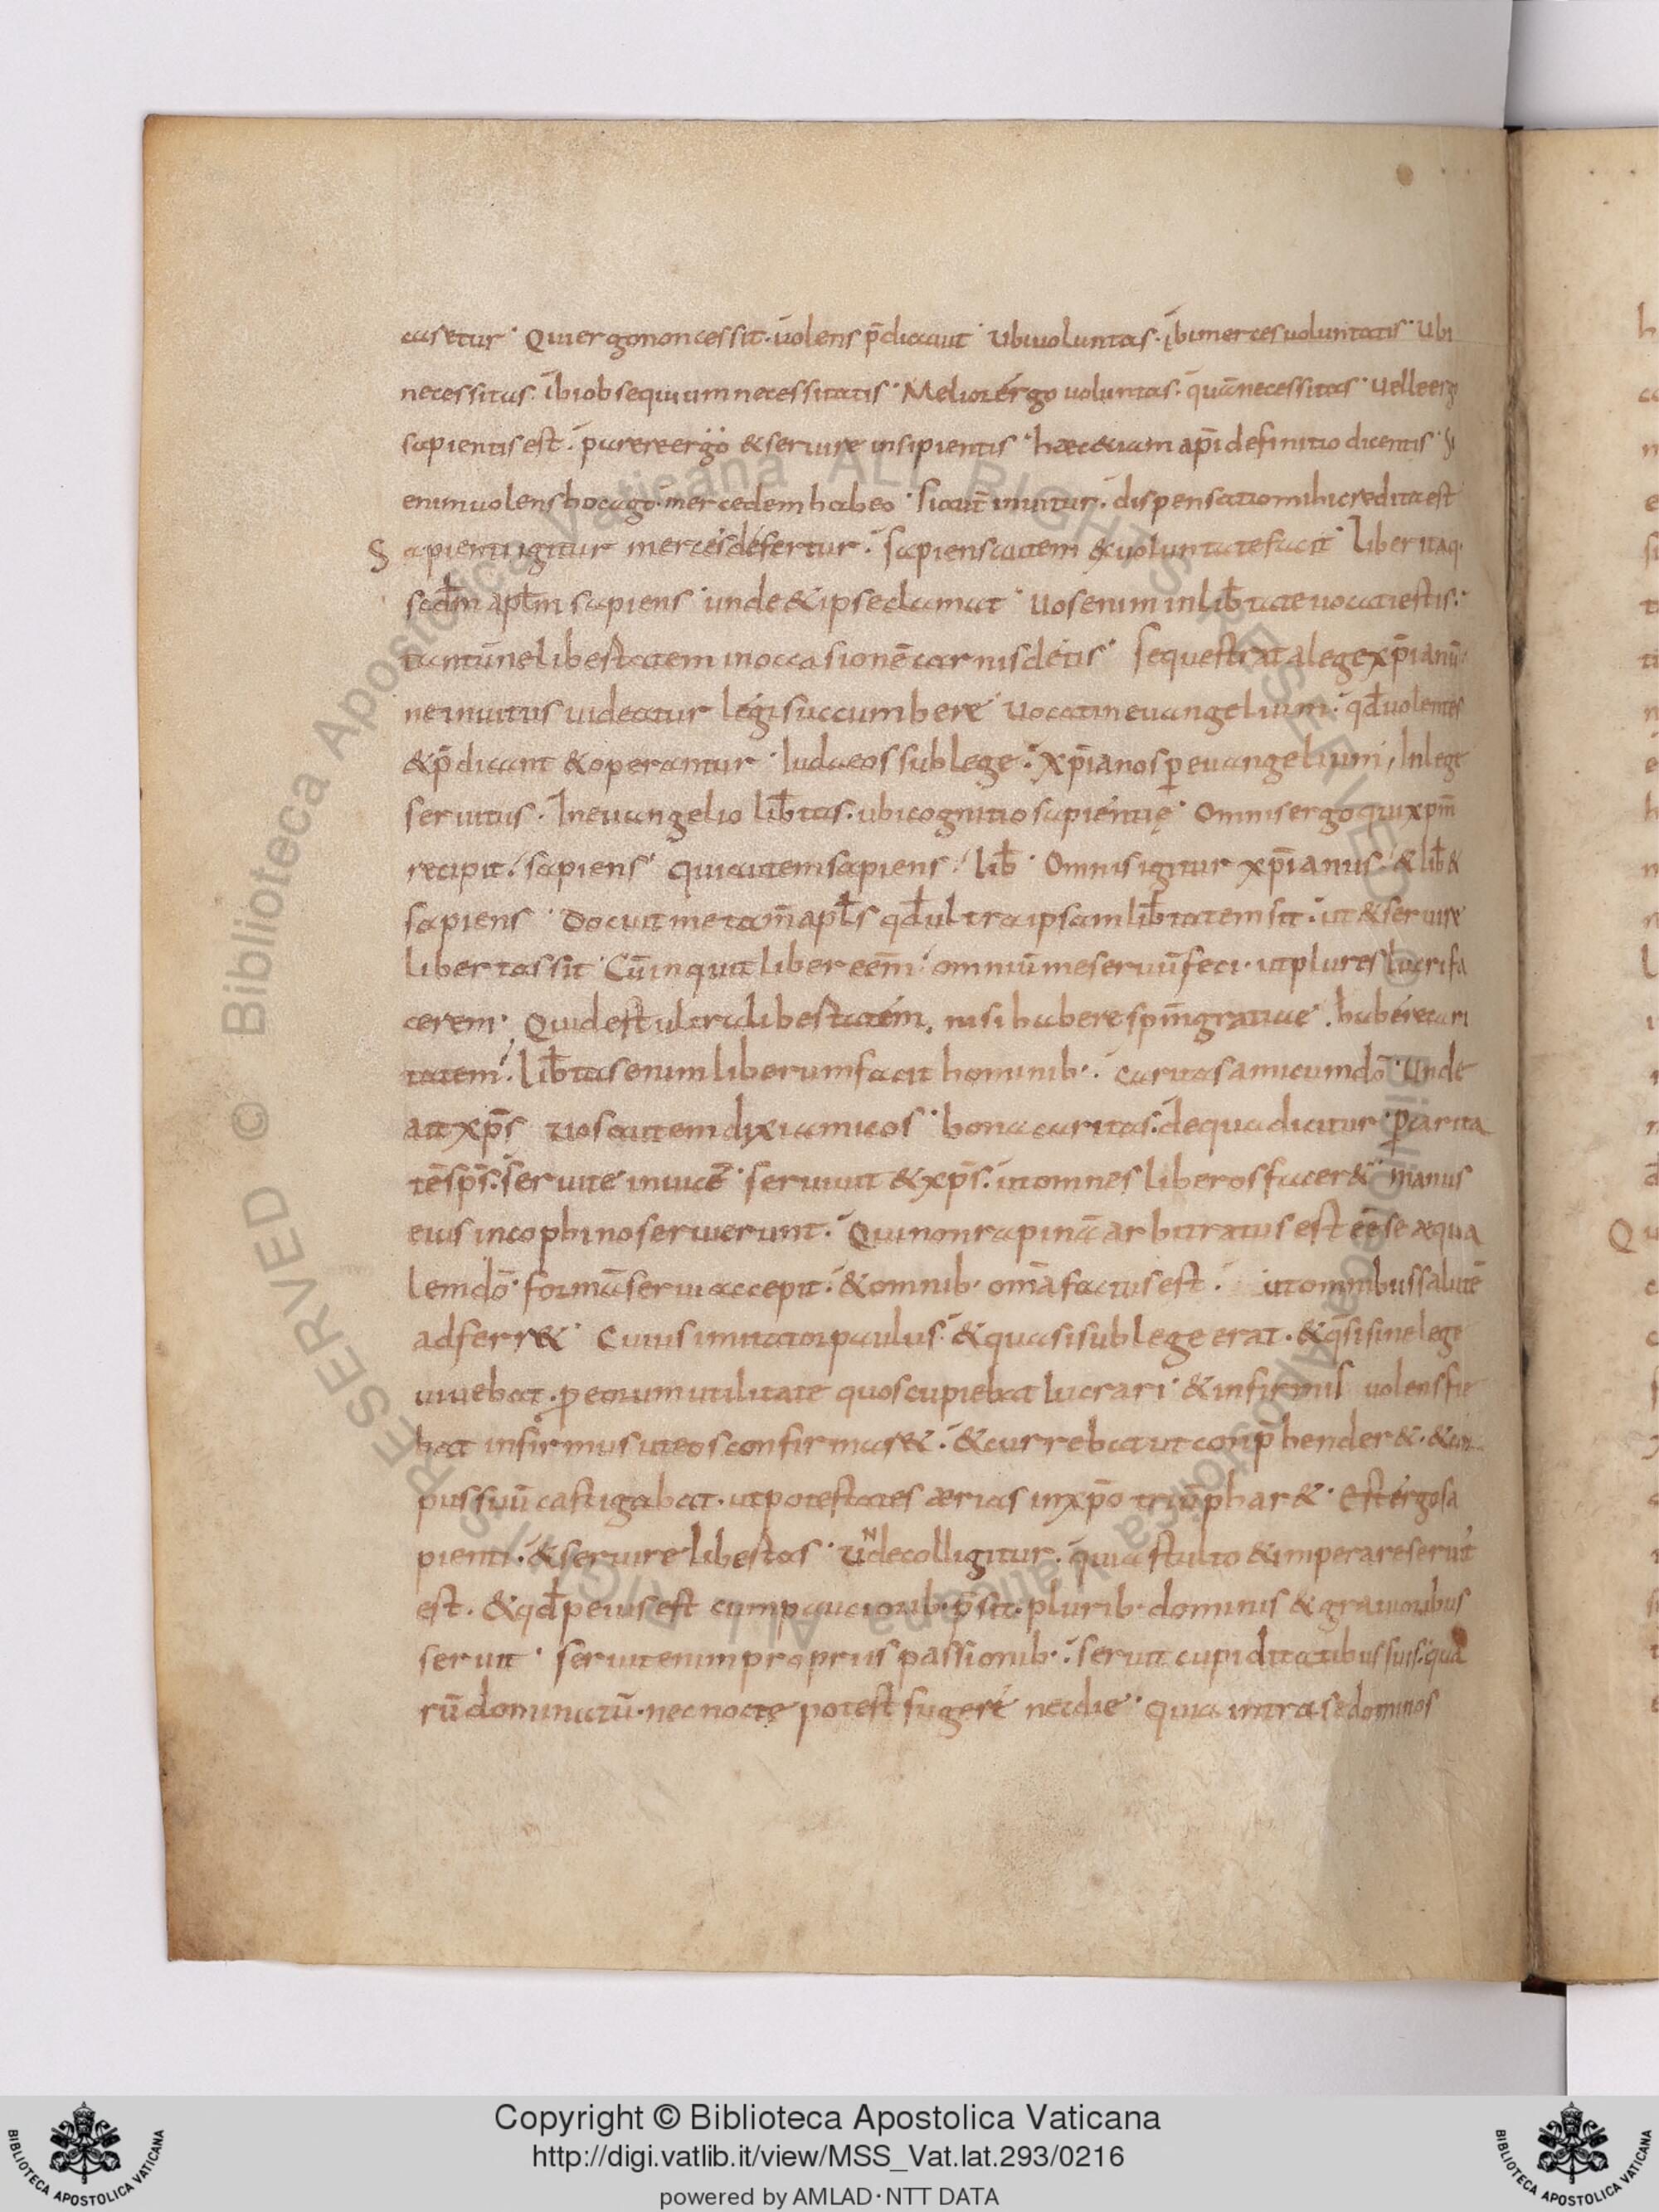 cusetur· Qui ergo non cessit· uolens p̄dicauit· Ubi uoluntas· ibi merces uoluntatis· Ubi
necessitas· ibi obsequium necessitatis· Melior ergo uoluntas· quā necessitas· Uelle ergo
sapientis est· parere ergo & seruire insipientis· haec etiam apli definitio dicentis· Si
enim uolens hoc ago· mercedem habeo· Si aut̄ inuitus· dispensatio mihi credita est
Sapienti igitur merces defertur· sapiens autem & uoluntate facit· Liber itaq·
scdm aptm sapiens· unde & ipse clamat· Uos enim in lib̄tate uocati estis·
tantū ne libertatem in occasionē carnis detis· Sequestrat a lege xp̄ianū·
ne inuitus uideatur legi succumbere· Uocat in euangelium· qđ uolentes
& p̄dicant & operantur· Iudaeos sub lege· Xp̄ianos p euangelium, In lege
seruitus· In euangelio lib̄tas· ubi cognitio sapientię· Omnis ergo qui xpm̄
recipit· sapiens· qui autem sapiens· lib̄· Omnis igitur xp̄ianus· & lib̄ &
sapiens· Docuit me tam̄ aplt̄s qđ ultra ipsam lib̄tatem sit· ut & seruire
libertas sit· Cū inquit liber eēm· omniū me seruū feci· ut plures lucrifa
cerem· Quid est ultra libertatem, nisi habere spm̄ gratiae· habere cari
tatem· Lib̄tas enim liberum facit hominib·· caritas amicum dō· Unde
ait xp̄s uos autem dixi amicos· bona caritas· de qua dicitur· p carita
tē sp̄s· seruite inuicē· seruiuit & xp̄s· ut omnes liberos facer&· manus
eius in cophino seruierunt· Qui non rapinā arbitratus est eēse aequa
lem dō· formā serui accepit· & omnib· om̄a factus est· ut omnibus salutē
adferr&· Cuius imitator paulus· & quasi sub lege erat· & q̄si sine lege
uiuebat· p eorum utilitate quos cupiebat lucrari· & infirmis uolens fie
bat infirmus ut eos confirmar&· & currebat ut conp̄hender&· & cor
pus suū castigabat· ut potestates aerias in xp̄o triūphar&· Est ergo sa
pienti· & seruire libertas· Unde colligitur· quia stulto & imperare seruit
est· & qđ peius est cum paucioub· p̄sit· plurib· dominis & grauioribus
seruit· seruit enim propriis passionib·· seruit cupiditatibus suis· qua
rū dominatū· nec nocte potest fugere nec die· quia intra se dominos
Copyright © Biblioteca Apostolica Vaticana
http://digi.vatlib.it/view/MSS_Vat.lat.293/0216
powered by AMLAD·NTT DATA